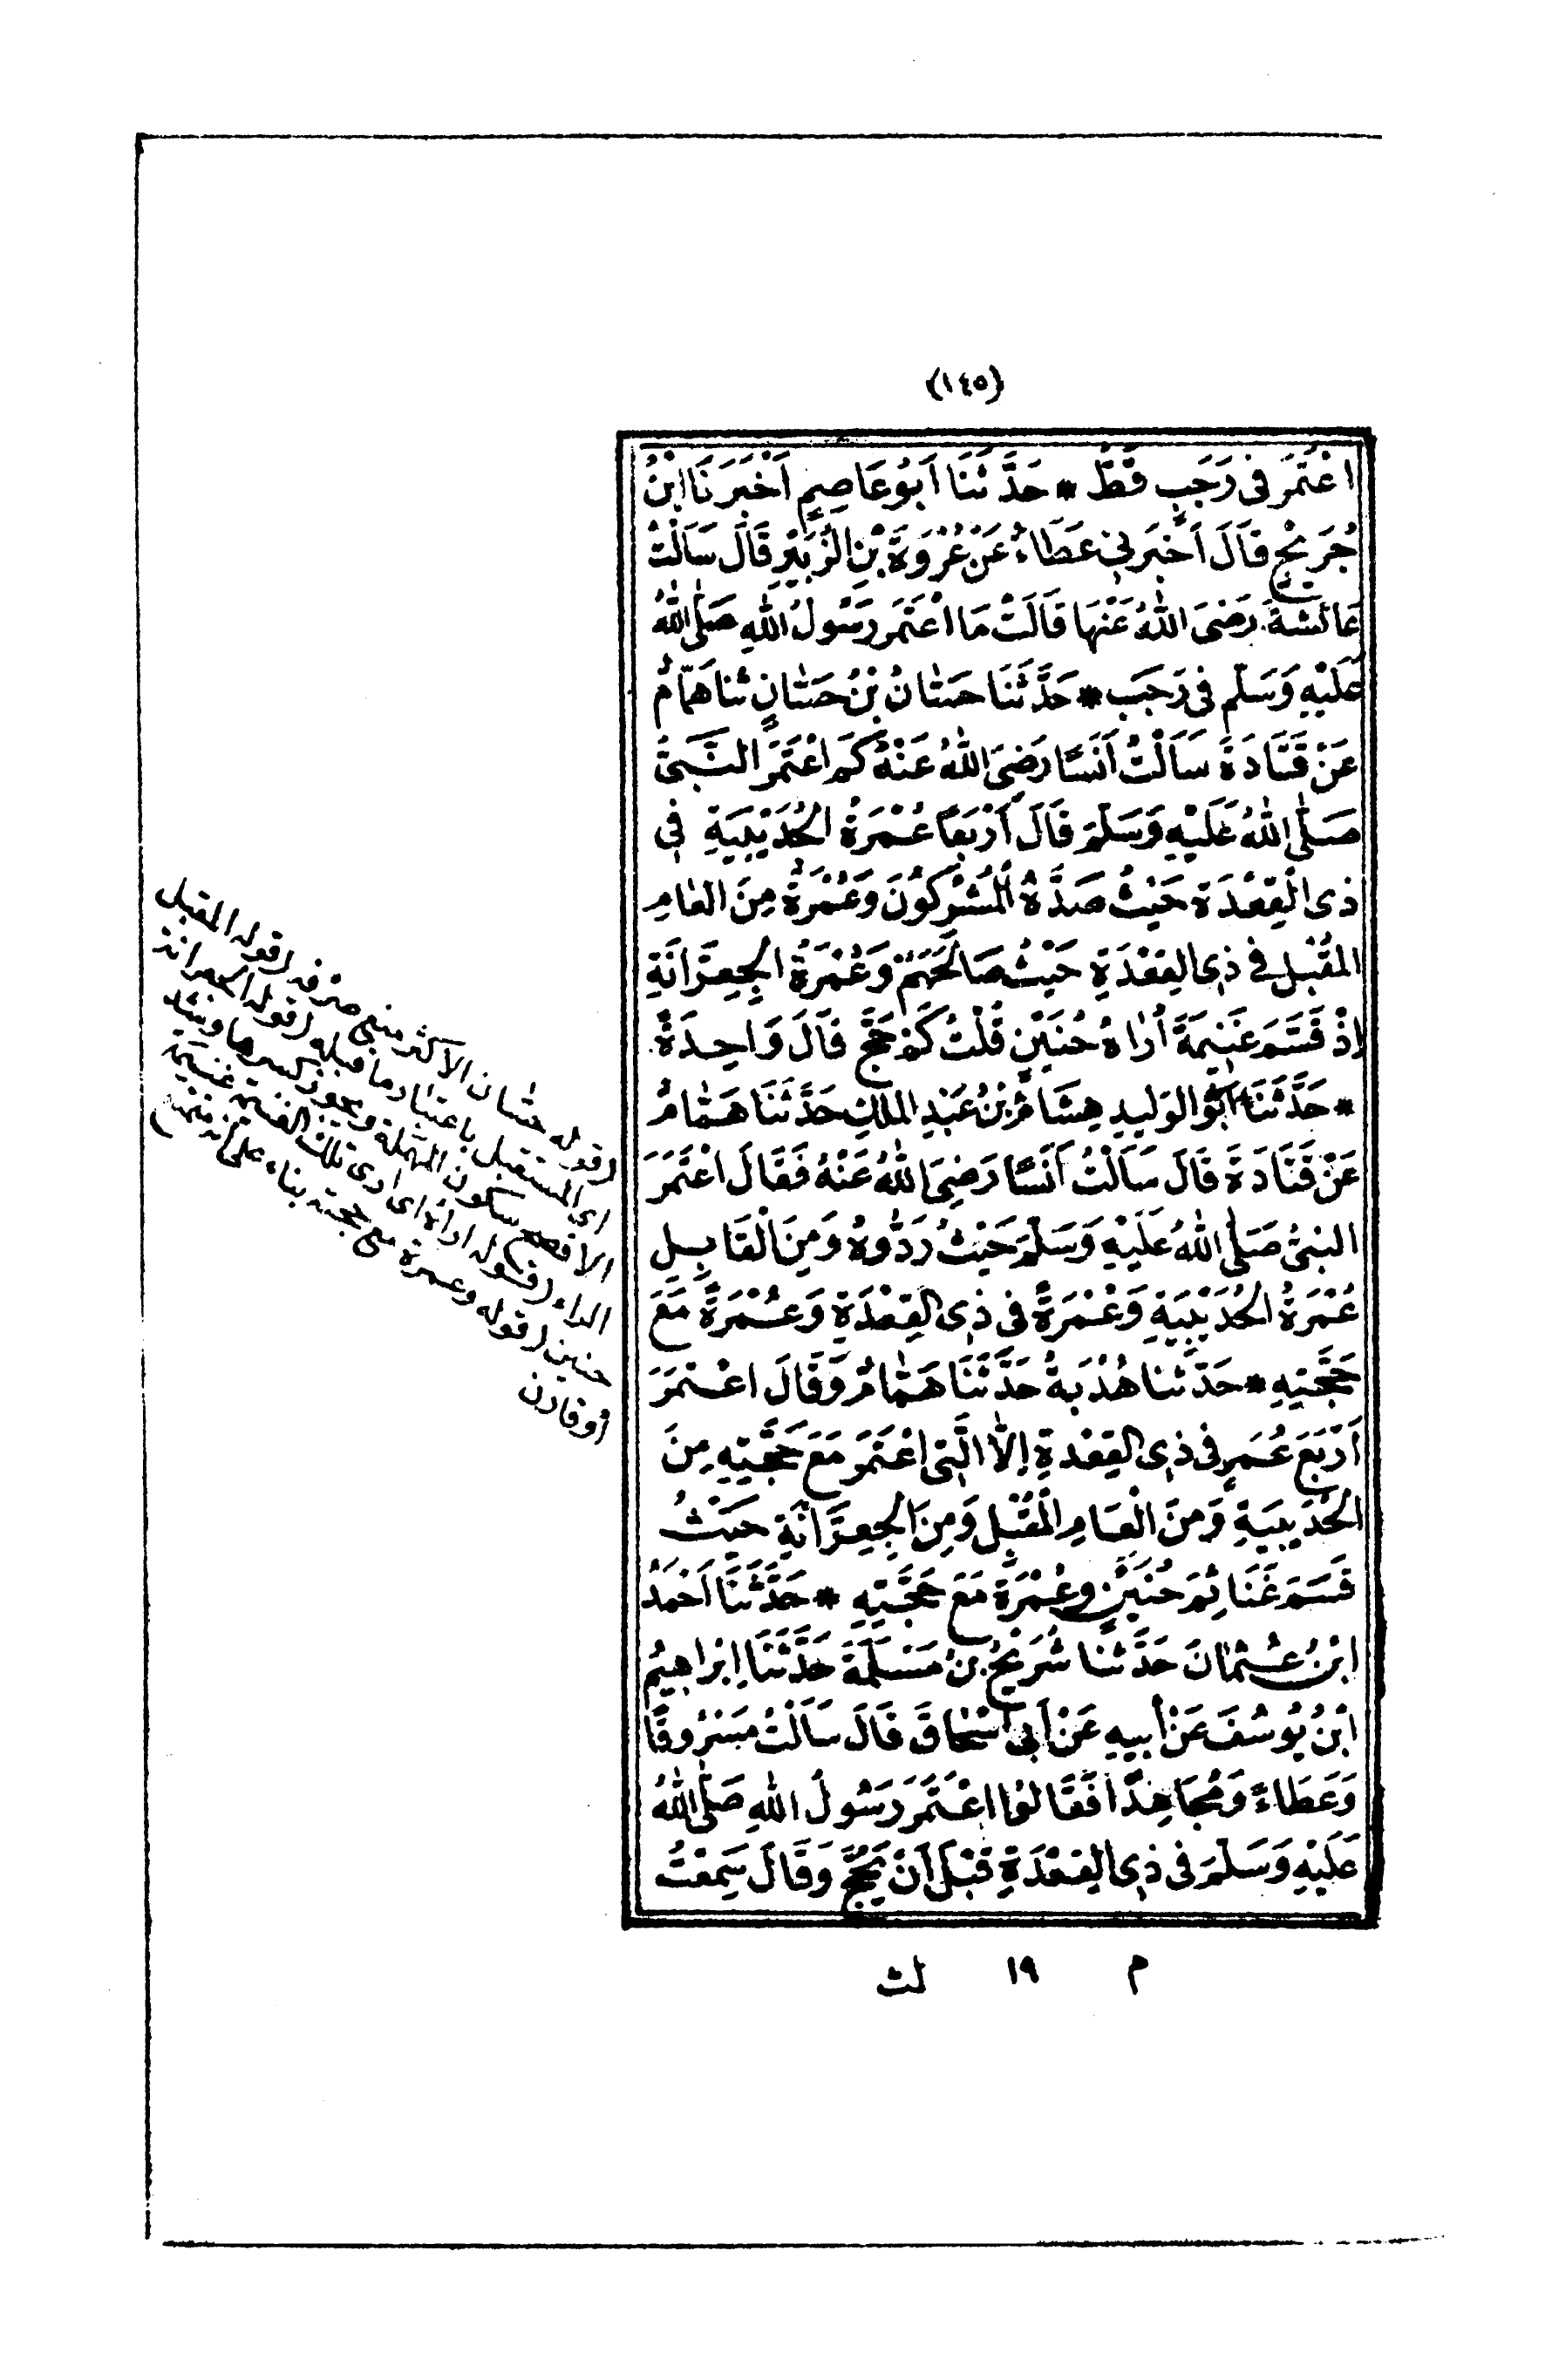 (١٤٥)
اعْتَمَرَ فِى رَجَبٍ قَطُّ * حَدَّثَنَا اَبُو عَاصِمٍ اَخْبَرَنَا ابْنُ
جُرَيْجٍ قَالَ اَخْبَرَنِى عَطَاءٌ عَنْ عُرْوَةَ بْنِ الزُّبَيْرِ قَالَ سَاَلْتُ
عَائِشَةَ رَضِىَ اللّٰهُ عَنْهَا قَالَتْ مَا اعْتَمَرَ رَسُولُ اللّٰهِ صَلَّى اللّٰهُ
عَلَيْهِ وَسَلَّمَ فِى رَجَبٍ * حَدَّثَنَا حَسَّانُ بْنُ حَسَّانٍ ثنا هَمَّامٌ
عَنْ قَتَادَةَ سَاَلْتُ اَنَسًا رَضِىَ اللّٰهُ عَنْهُ كَمِ اعْتَمَرَ النَّبِىُّ
صَلَّى اللّٰهُ عَلَيْهِ وَسَلَّمَ قَالَ اَرْبَعًا عُمْرَةُ الْحُدَيْبِيَةِ فِى
ذِى الْقِعْدَةِ حَيْثُ صَدَّهُ الْمُشْرِكُونَ وَعُمْرَةٌ مِنَ الْعَامِ
الْمُقْبِلِ فِى ذِى الْقِعْدَةِ حَيْثُ صَالَحَهُمْ وَعُمْرَةُ الْجِعِرَّانَةِ
اِذْ قَسَمَ غَنِيمَةَ اُرَاهُ حُنَيْنٍ قُلْتُ كَمْ حَجَّ قَالَ وَاحِدَةً
* حَدَّثَنَا اَبُو الْوَلِيدِ هِشَامُ بْنُ عَبْدِ الْمَلِكِ حَدَّثَنَا هَمَّامٌ
عَنْ قَتَادَةَ قَالَ سَاَلْتُ اَنَسًا رَضِىَ اللّٰهُ عَنْهُ فَقَالَ اعْتَمَرَ
النَّبِىُّ صَلَّى اللّٰهُ عَلَيْهِ وَسَلَّمَ حَيْثُ رَدُّوهُ وَمِنَ الْقَابِلِ
عُمْرَةَ الْحُدَيْبِيَةِ وَعُمْرَةً فِى ذِى الْقِعْدَةِ وَعُمْرَةً مَعَ
حَجَّتِهِ * حَدَّثَنَا هُدْبَةُ حَدَّثَنَا هَمَّامٌ وَقَالَ اعْتَمَرَ
اَرْبَعَ عُمَرٍ فِى ذِى الْقِعْدَةِ اِلَّا الَّتِى اعْتَمَرَ مَعَ حَجَّتِهِ مِنَ
الْحُدَيْبِيَةِ وَمِنَ الْعَامِ الْمُقْبِلِ وَمِنَ الْجِعِرَّانَةِ حَيْثُ
قَسَمَ غَنَائِمَ حُنَيْنٍ وَعُمْرَةً مَعَ حَجَّتِهِ * حَدَّثَنَا اَحْمَدُ
ابْنُ عُثْمَانَ حَدَّثَنَا شُرَيْحُ بْنُ مَسْلَمَةَ حَدَّثَنَا اِبْرَاهِيمُ
ابْنُ يُوسُفَ عَنْ اَبِيهِ عَنْ اَبِى اِسْحَاقَ قَالَ سَاَلْتُ مَسْرُوقًا
وَعَطَاءً وَمُجَاهِدًا فَقَالُوا اعْتَمَرَ رَسُولُ اللّٰهِ صَلَّى اللّٰهُ
عَلَيْهِ وَسَلَّمَ فِى ذِى الْقِعْدَةِ قَبْلَ اَنْ يَحُجَّ وَقَالَ سَمِعْتُ
(قوله حسان الاكثر منع صرفه (قوله المقبل
اى المستقبل باعتبار ما قبله (قوله الجعرانة
الافصح سكون المهملة ويجوز كسرها وتشد
الراء (قوله اراه اى ارى تلك الغنيمة غنيمة
حنين (قوله وعمرة مع حجته بناء على انه متمتع
او قارن
م ١٩ لث